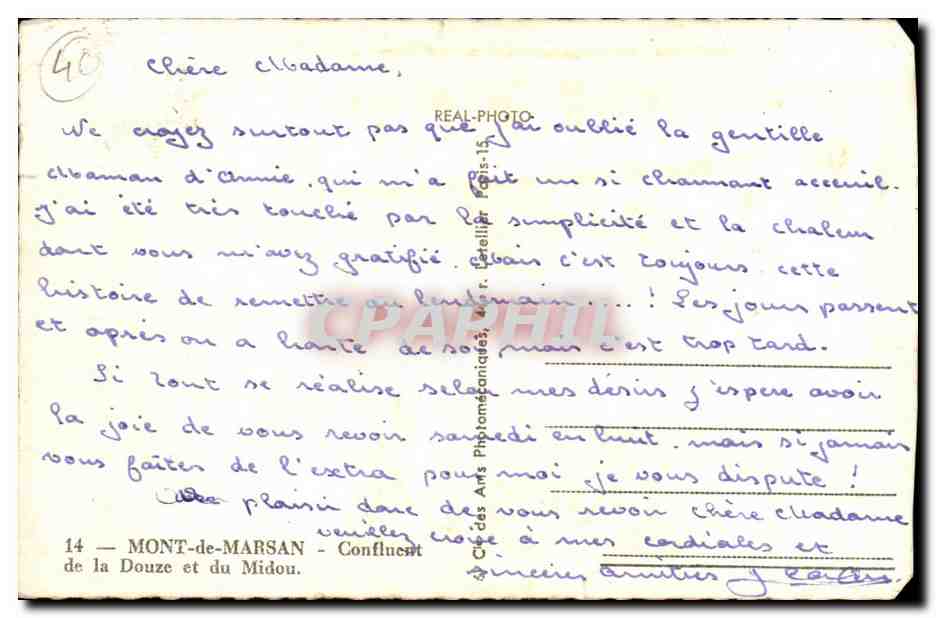 40
Chère Madame,
REAL-PHOTO
Ne croyez surtout pas que j'ai oublié la gentille
Maman d'Annie, qui m'a fait un si charmant acceuil.
J'ai été très touché par la simplicité et la chaleur
dont vous m'avez gratifié. Mais c'est toujours cette
histoire de remettre au lendemain.....! Les jours passent
et après on a honte de soi, mais c'est trop tard.
Si tout se réalise selon mes désirs j'espere avoir
la joie de vous revoir samedi en huit, mais si jamais
vous faîtes de l'extra pour moi, je vous dispute !
plaisir donc de vous revoir Chère Madame
veuillez croire à mes cordiales et
sincères amitiés J
14 — MONT-de-MARSAN - Confluent
de la Douze et du Midou.
Cie des Arts Photomécaniques, F. Letellier Paris-15
CPAPHIL